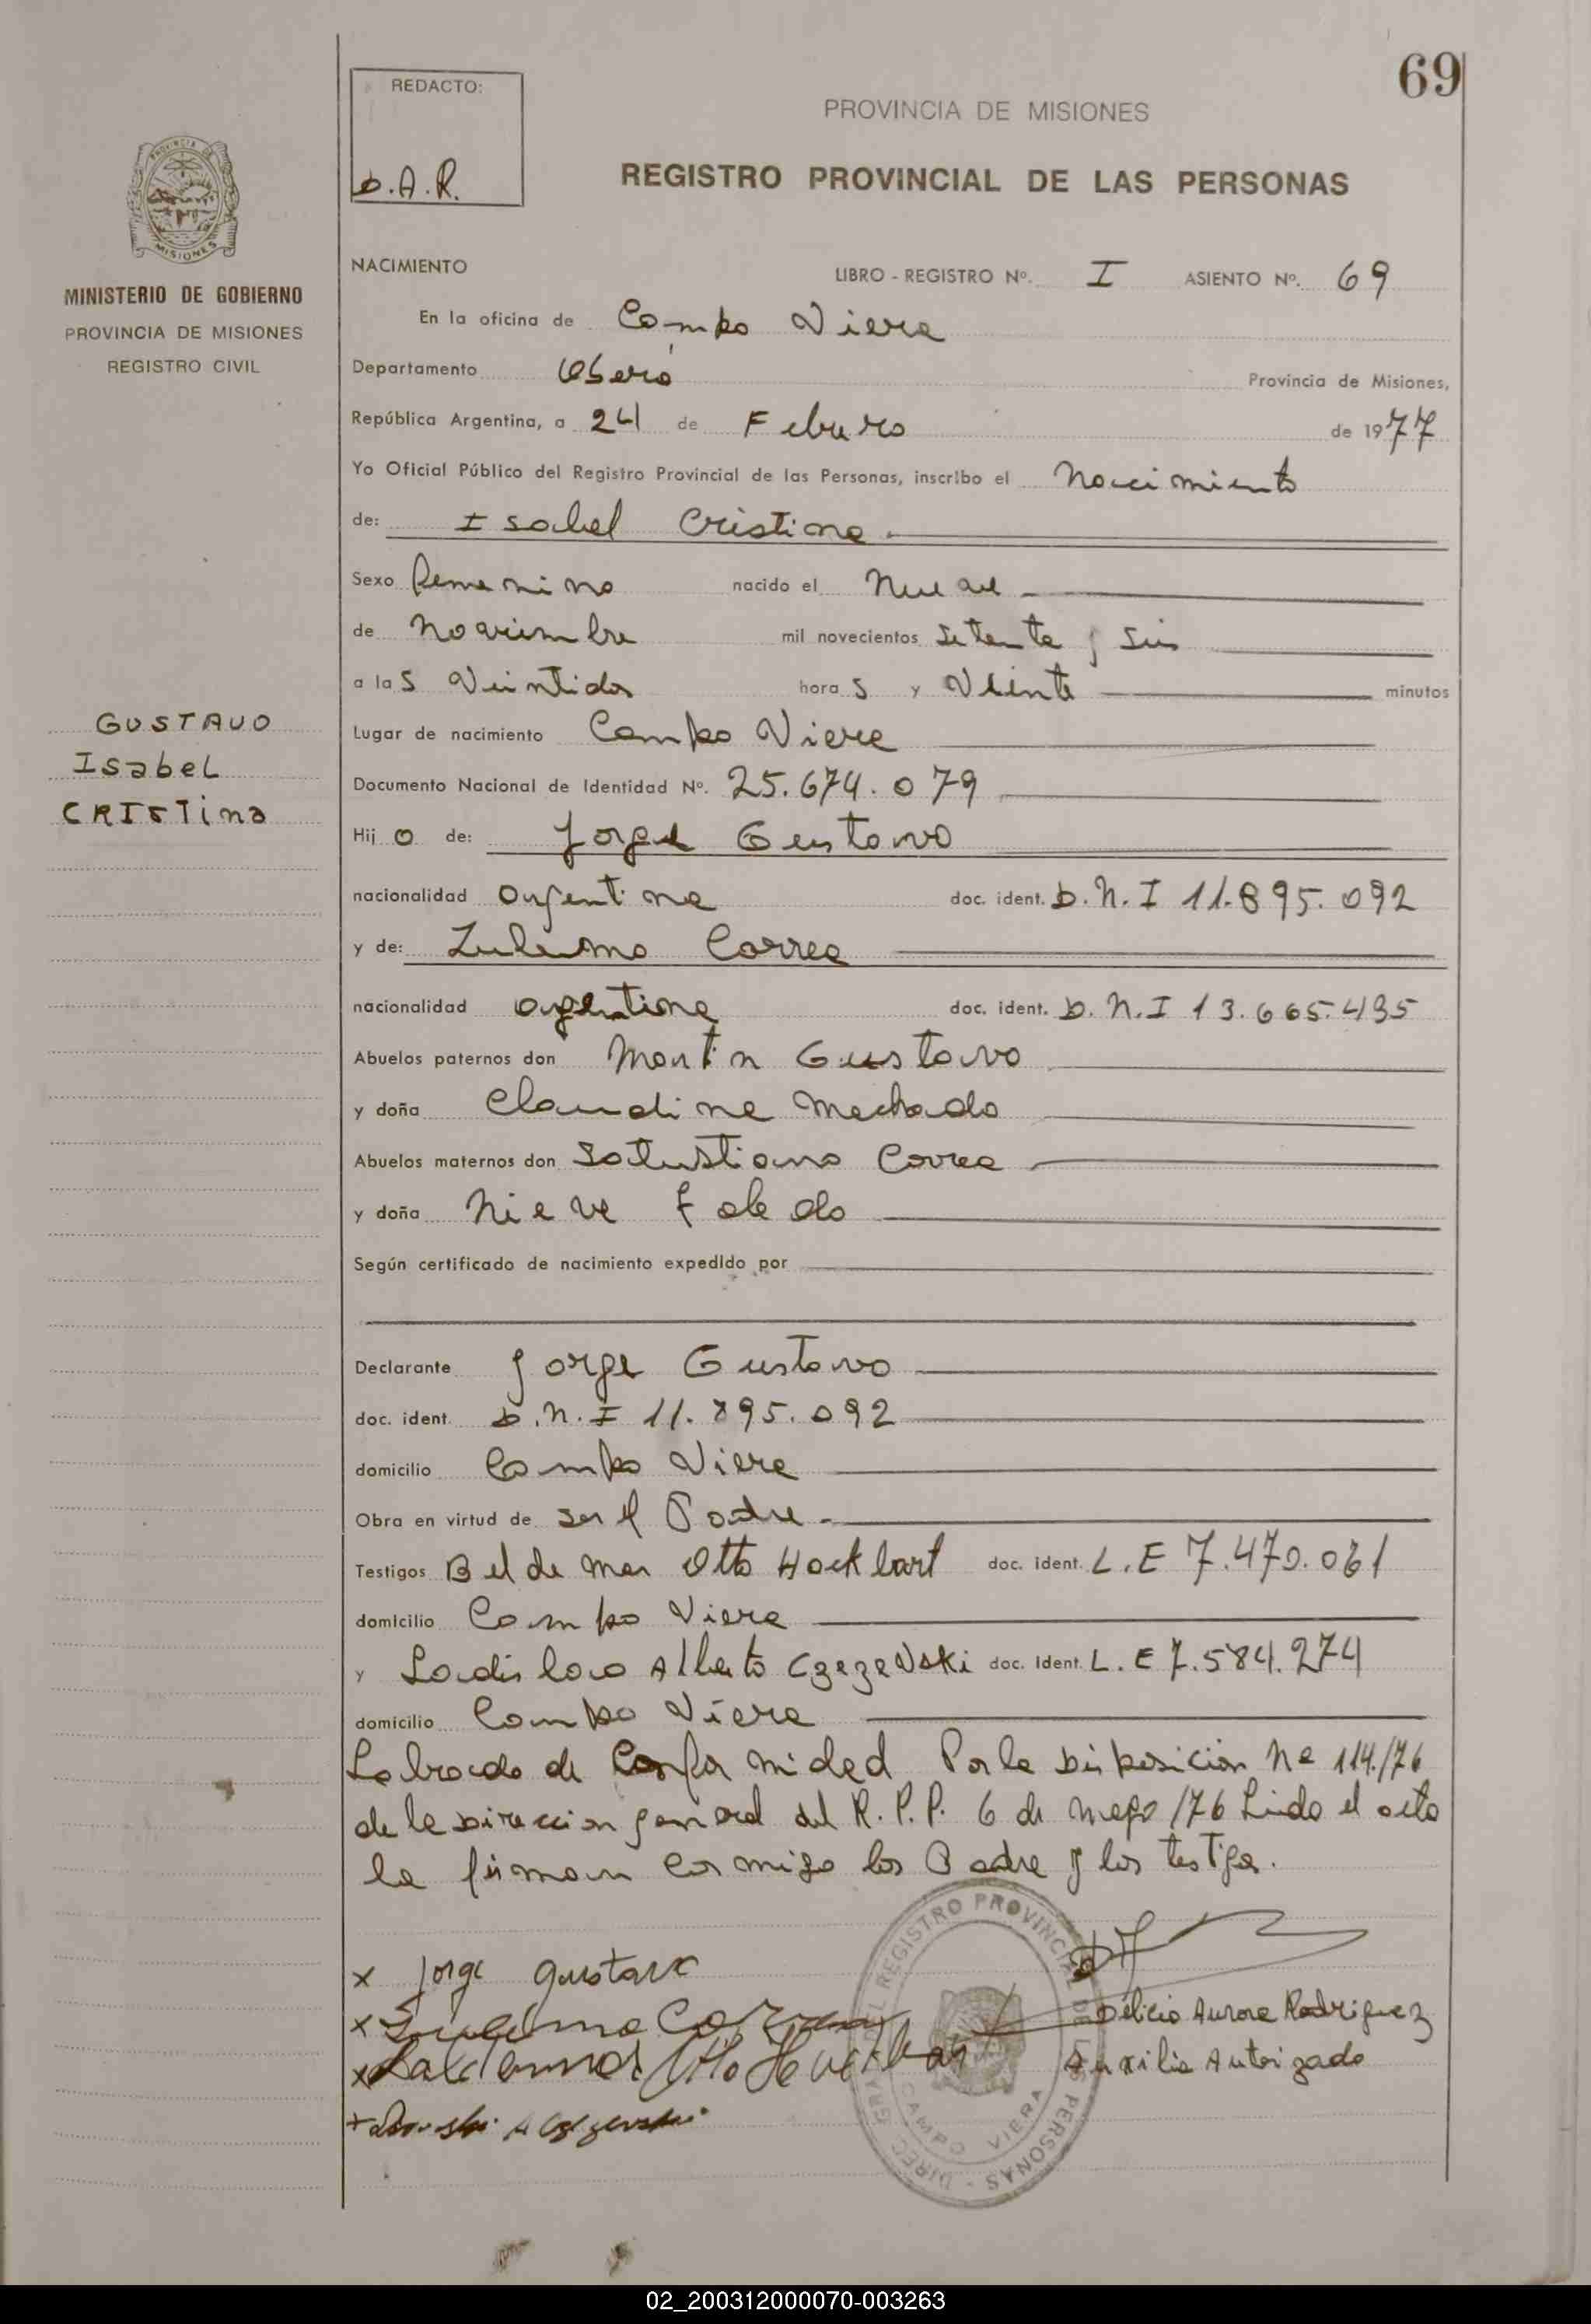 69
REDACTO:
D.A.R.
PROVINCIA DE MISIONES
REGISTRO PROVINCIAL DE LAS PERSONAS
MINISTERIO DE GOBIERNO
PROVINCIA DE MISIONES
REGISTRO CIVIL
GUSTAVO
Isabel
CRISTina
NACIMIENTO LIBRO - REGISTRO Nº. I ASIENTO Nº. 69
En la oficina de Campo Viera
Departamento Oberá Provincia de Misiones,
República Argentina, a 24 de Febrero de 1977
Yo Oficial Público del Registro Provincial de las Personas, inscribo el Nacimiento
de: Isabel Cristina
Sexo Femenino nacido el Nueve
de Noviembre mil novecientos Setenta y Seis
a las Veintidos horas y Veinte minutos
Lugar de nacimiento Campo Viera
Documento Nacional de Identidad Nº. 25.674.079
Hijo de: Jorge Gustavo
nacionalidad Argentina doc. ident. D.N.I 11.895.092
y de: Zulema Correa
nacionalidad argentina doc. ident. D.N.I 13.665.435
Abuelos paternos don Martin Gustavo
y doña Claudina Machado
Abuelos maternos don Correa
y doña Nieve
Según certificado de nacimiento expedido por
Declarante Jorge Gustavo
doc. ident. D.N.I 11.895.092
domicilio Campo Viera
Obra en virtud de ser el Padre
Testigos Beldemar Otto Hockbart doc. ident. L.E 7.470.061
domicilio Campo Viera
y Ladislavo Alberto Czezevski doc. ident. L.E 7.584.274
domicilio Campo Viera
Labrado de Conformidad Por la Disposicion Nº 114/76
de la Direccion general del R.P.P. 6 de Mayo/76 Leido el acta
la firman conmigo los Padre y los testigo.
x Jorge Gustavo
x Zulema Correa
Delicia Aurora Rodriguez
Auxilia Autorizado
DIREC. GRAL. DEL REGISTRO PROVINCIAL DE LAS PERSONAS
CAMPO VIERA
02_200312000070-003263